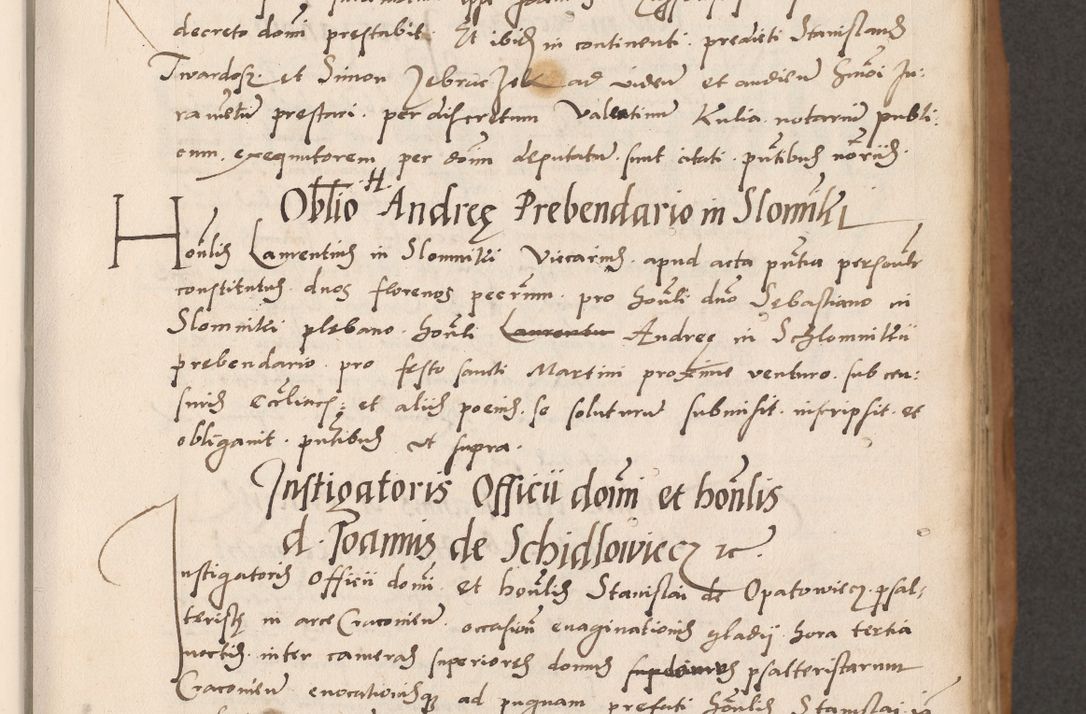 decreto domi prestabit. Et ibidem in continenti. predicti Stanislaus
Twardosz. et Simon Zebraczek ad viden et audien hmoi Ju:
ramentum prestari. per discretum Valentinum Kulia notarium publi:
cum. exequutorem per domi deputatum sunt citati. pntibus notriis.
Obltio H Andreę Prebendario in Slomniki
Honlis Laurentius in Slomniki Vicarius. apud acta pntia personlr
constitutus. duos florenos pecrum. pro honli dno Sebastiano in
Slomniki plebano. honli Laurentio Andreę in Schlomnikii
prebendario. pro festo sancti Martini proxime venturo. sub cen:
suris Ecclicis: et aliis poenis. se soluturum submisit. inscripsit. et
obliganit. pntibus ut supra.
Instigatoris Officii domi et honlis
d. Joannis de Schidlowiecz ꝛc.
Instigatoris Officii domi. et honlis Stanislai de Opatowiecz. psal-
teristę in arce Cracovien. occasione evaginationis gladij hora tertia
noctis. inter cameras superiores domus psalteristarum
Cracovien evocationisque ad pugnam prefati honlis Stanislai